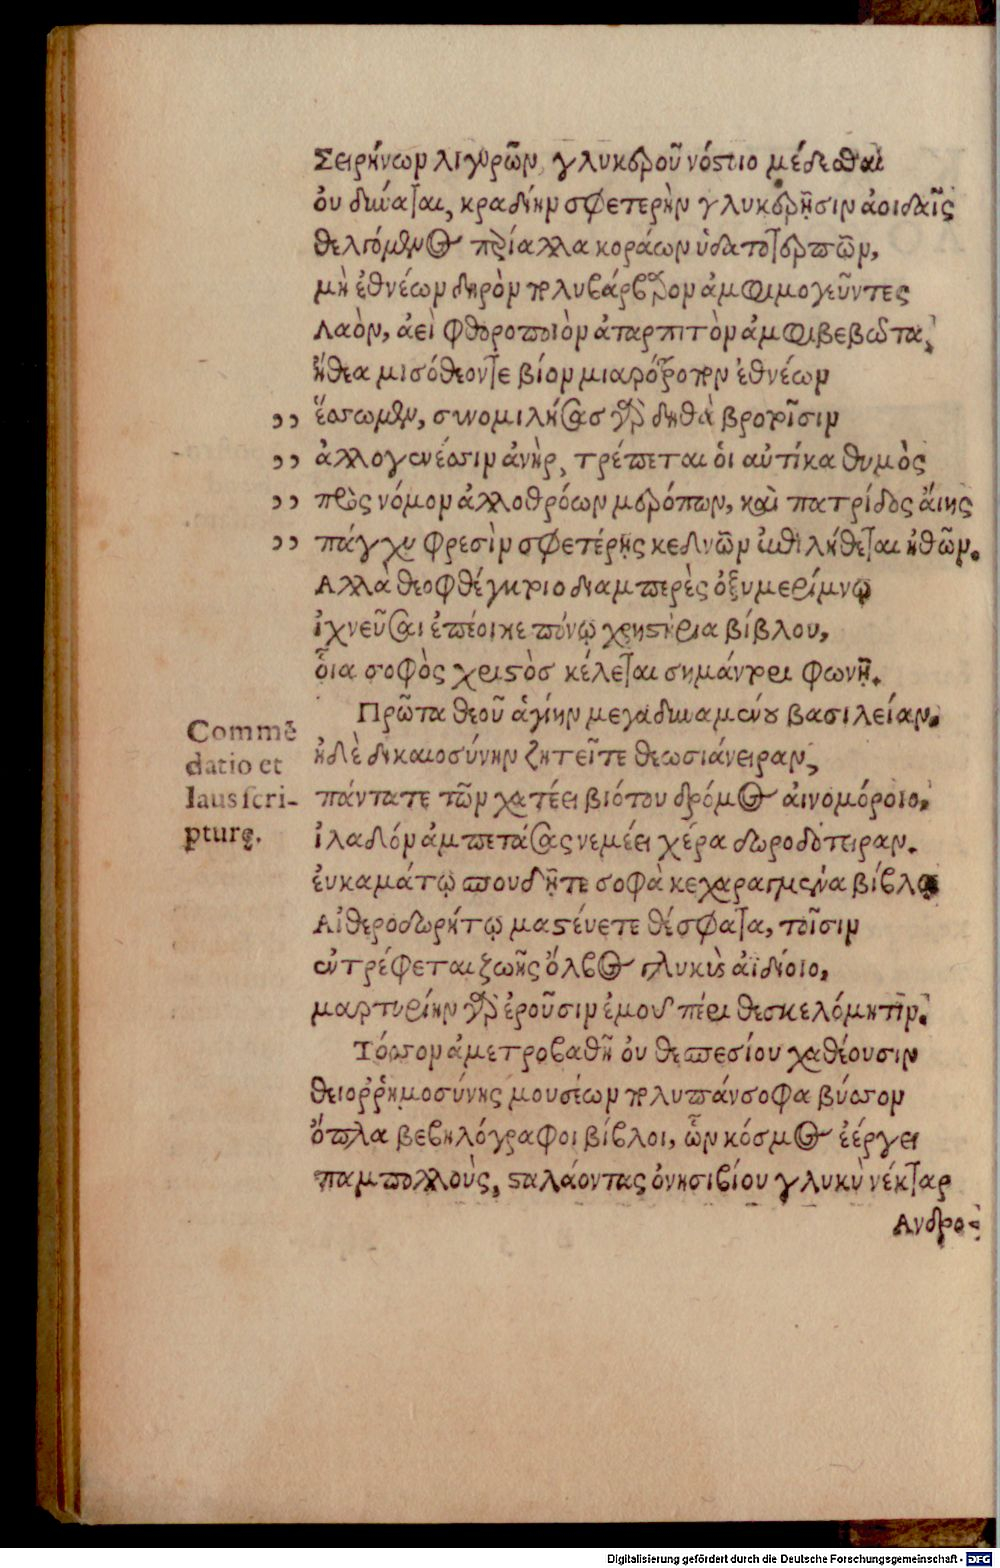 Σειρήνωμ λιγυρῶμ, γλυκεροῦ νόστιο μέδεσθαι
ὀυ δύναται, κραδίημ σφετερὴμ γλυκερῇσιμ ἀοιδαῖς
θελγόμενος κοράωμ ὑδατοτερπῶμ,
μὴ ἐθνέωμ δηρὸμ ἀμφιμογεῦντες
Λαὸμ, ἀεὶ φθοροποιὸμ ἀταρπιτὸμ ἀμφιβεβῶτα,
ἤθεα μισόθεόντε βίομ ἐθνέωμ
,, ἕσσωμεν, συνομιλήσας γὰρ δηθὰ βροτοῖσιμ
,, ἀλλογενέσσιμ ἀνὴρ, τρέπεται ὁι αὐτίκα θυμὸς
,, πρὸς νόμομ ἀλλοθρόωμ μερόπωμ, καὶ πατρίδος ἄιης
,, πάγχυ φρεσὶμ σφετέρῃς κεδνῶμ ἐπιλήθεται ἠθῶμ.
Αλλὰ θεοφθέγκτοιο διαμπερὲς ὀξυμερίμνῳ
ἰχνεῦσαι ἐπέοικε πόνῳ χρηστήρια βίβλου,
οἷα σοφὸς χριστὸσ κέλεται σημάντορι φωνῇ.
Πρῶτα θεοῦ ἁγίημ μεγαδυναμένου βασιλείαμ.
Commē ἠδὲ δικαιοσύνημ ζητεῖτε θεωσιάνειραμ,
datio et πάντατε τῶμ χατέει βιότου δρόμος ἀινομόροιο,
laus scri- ἱλαδόμ ἀμπετάσας νεμέει χέρα δωροδότειραμ.
pturę. ἐυκαμάτῳ σπουδῇτε σοφὰ κεχαραγμένα βίβλῳ
Αἰθεροδωρήτῳ μαστένετε θέσφατα, τοῖσιμ
ἐντρέφεται ζωῆς ὄλβος γλυκὺς ἀϊδίοιο,
μαρτυρίημ γὰρ ἐροῦσιμ ἐμοῦ πέρι θεσκελόμητιμ.
Τόσσομ ἀμετροβαθῆ ὀυ θεσπεσίου χαθέουσιμ
θειοῤῥημοσύνης μουσέωμ πάνσοφα βύσσομ
ὅπλα βεβηλόγραφοι βίβλοι, ὧμ κόσμος ἐέργει
παμπολλοὺς, σταλάοντας ὀνησιβίου γλυκὺ νέκταρ
Ανδρο-
Digitalisierung gefördert durch die Deutsche Forschungsgemeinschaft - DFG